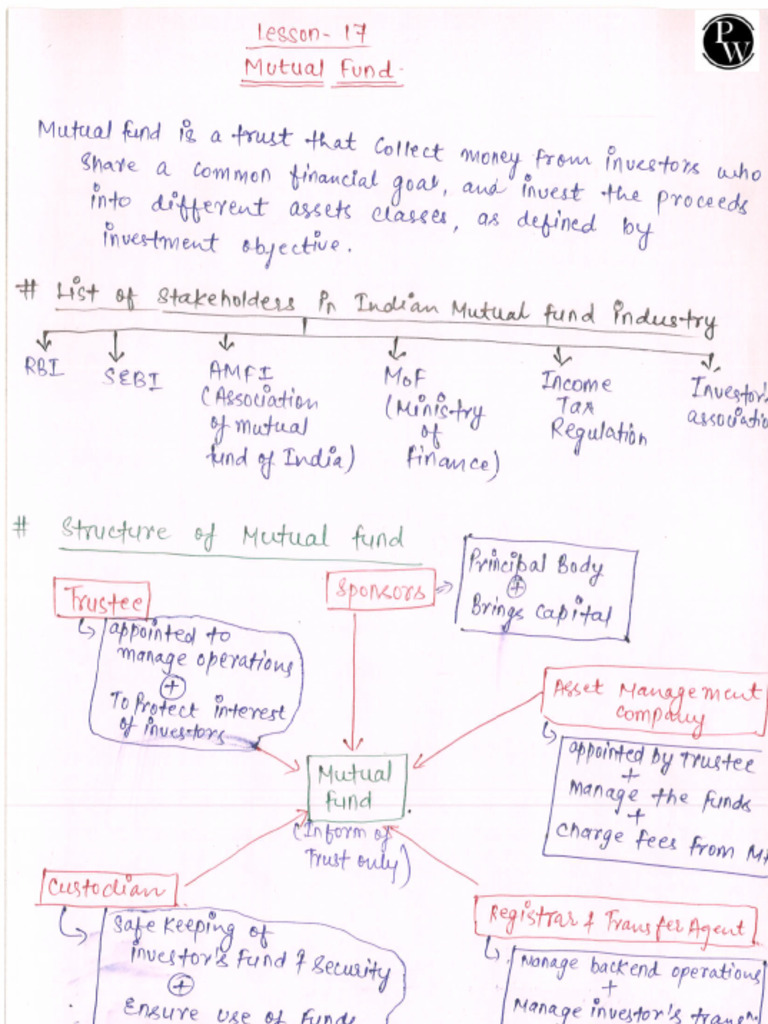 Lesson-17
PW
Mutual Fund.
Mutual fund is a trust that collect money from investors who
share a common financial goal, and invest the proceeds
into different assets classes, as defined by
investment objective.
# List of Stakeholders in Indian Mutual fund industry
RBI
SEBI
AMFI
(Association
of mutual
fund of India)
MoF
(Ministry
of
finance)
Income
Tax
Regulation
Investor's
associatio
# Structure of Mutual fund
Trustee
appointed to
manage operations
+
To Protect interest
of investors
Sponsors
Principal Body
+
Brings capital
Asset Management
company
appointed by trustee
+
Manage the funds
+
charge fees from M
Mutual
fund
(Inform of
Trust only)
Custodian
Safe keeping of
investor's fund & security
+
Ensure use of funds
Registrar & Transfer Agent
Manage backend operations
+
Manage investor's transn.